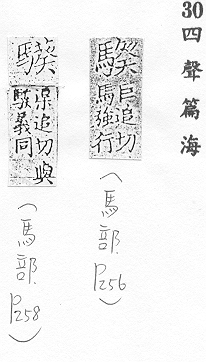 30 四聲篇海
騤
巨追切
馬強行
（馬部 P256）
渠追切與
騤義同
（馬部 P258）